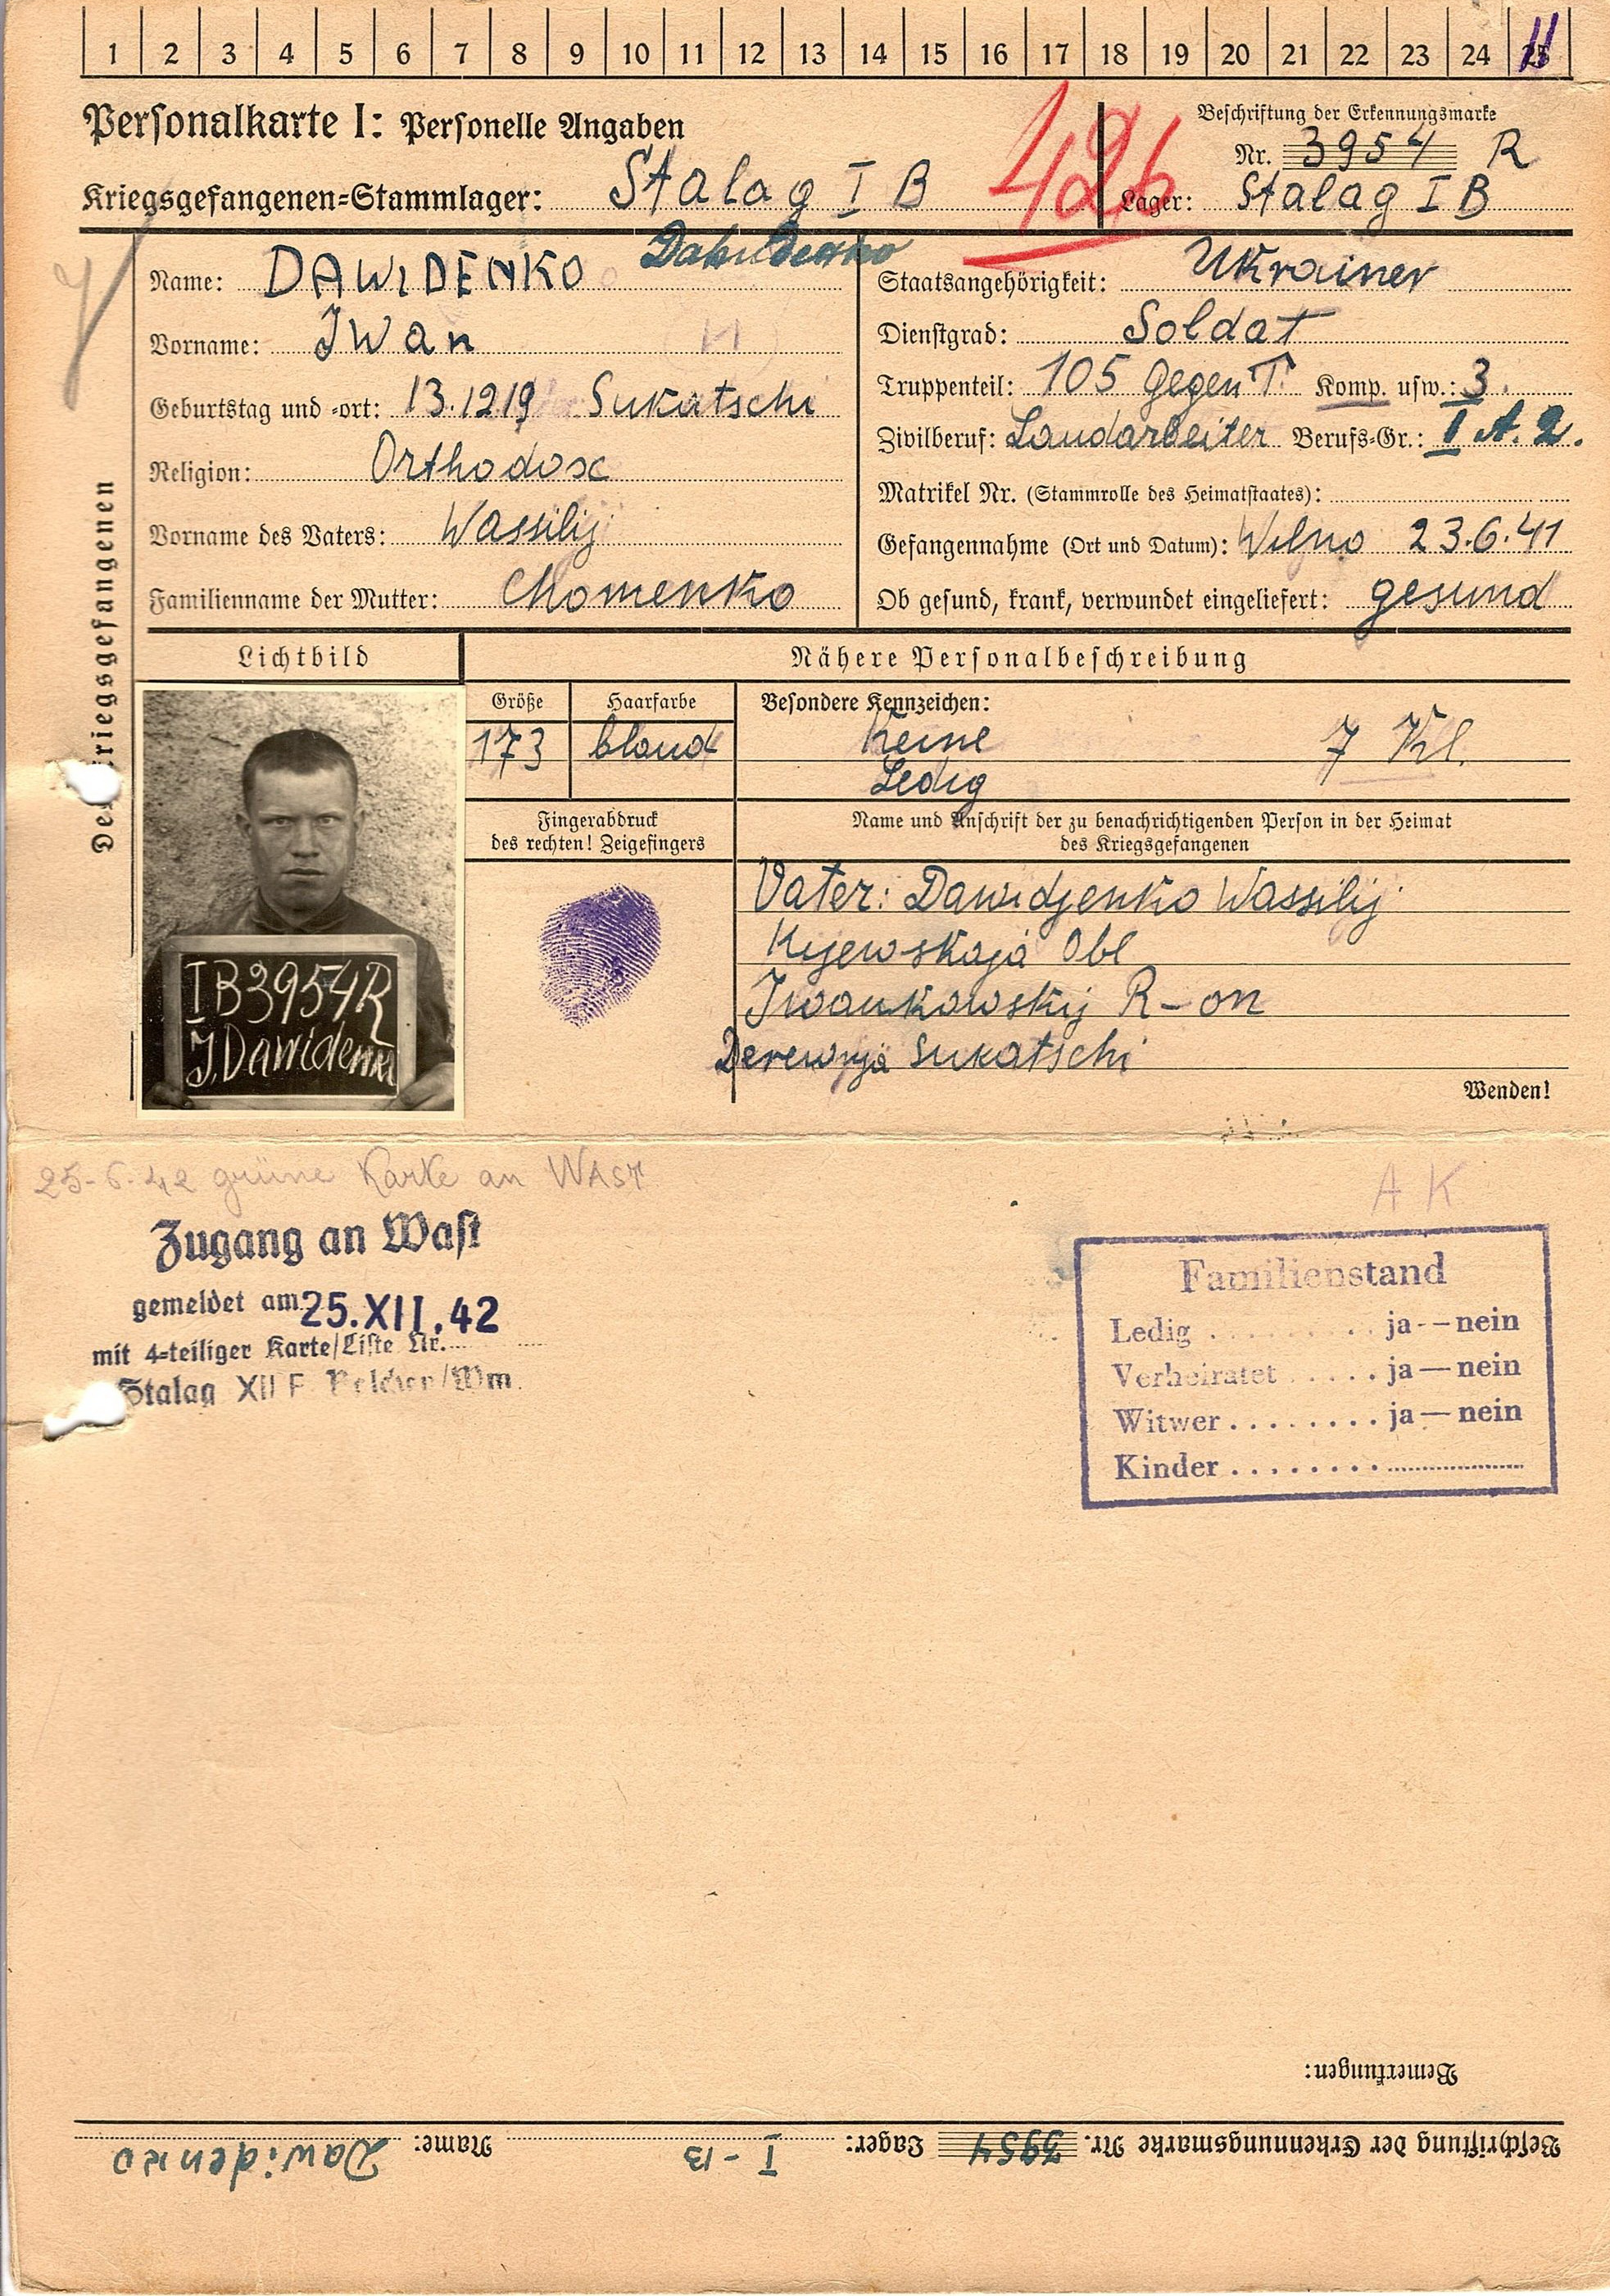 1 2 3 4 5 6 7 8 9 10 11 12 13 14 15 16 17 18 19 20 21 22 23 24 25
Personalkarte I: Personelle Angaben
426
Beschriftung der Erkennungsmarke
Nr. 3954 R
Kriegsgefangenen-Stammlager: Stalag I B
Lager: Stalag I B
Name: DAWIDENKO
Vorname: Iwan
Geburtstag und -ort: 13.1219 Sukatschi
Religion: Orthodox
Vorname des Vaters: Wassilij
Familienname der Mutter: Chomenko
Staatsangehörigkeit: Ukrainer
Dienstgrad: Soldat
Truppenteil: 105 Gegen T. Komp. usw.: 3.
Zivilberuf: Landarbeiter Berufs-Gr.: I A. 2.
Matrikel Nr. (Stammrolle des Heimatstaates):
Gefangennahme (Ort und Datum): Wilno 23.6.41
Ob gesund, krank, verwundet eingeliefert: gesund
Des Kriegsgefangenen
Lichtbild
Nähere Personalbeschreibung
Größe
173
Haarfarbe
blond
Besondere Kennzeichen:
Keine
7 Kl.
Ledig
Fingerabdruck
des rechten! Zeigefingers
Name und Anschrift der zu benachrichtigenden Person in der Heimat
des Kriegsgefangenen
Vater: Dawidjenko Wassilij
Kijewskaja Obl
Iwankowskij R-on
Derewnja Sukatschi
IB3954R
I. Dawidenko
Wenden!
25-6-42 grüne Karte an WAST
A K
Zugang an Wast
gemeldet am 25.XII.42
mit 4-teiliger Karte/Liste Nr.
Stalag XII F
Familienstand
Ledig ja--nein
Verheiratet ja—nein
Witwer ja—nein
Kinder
Bemerkungen:
Beschriftung der Erkennungsmarke Nr. 3954 Lager: I-B Name: Dawidenko